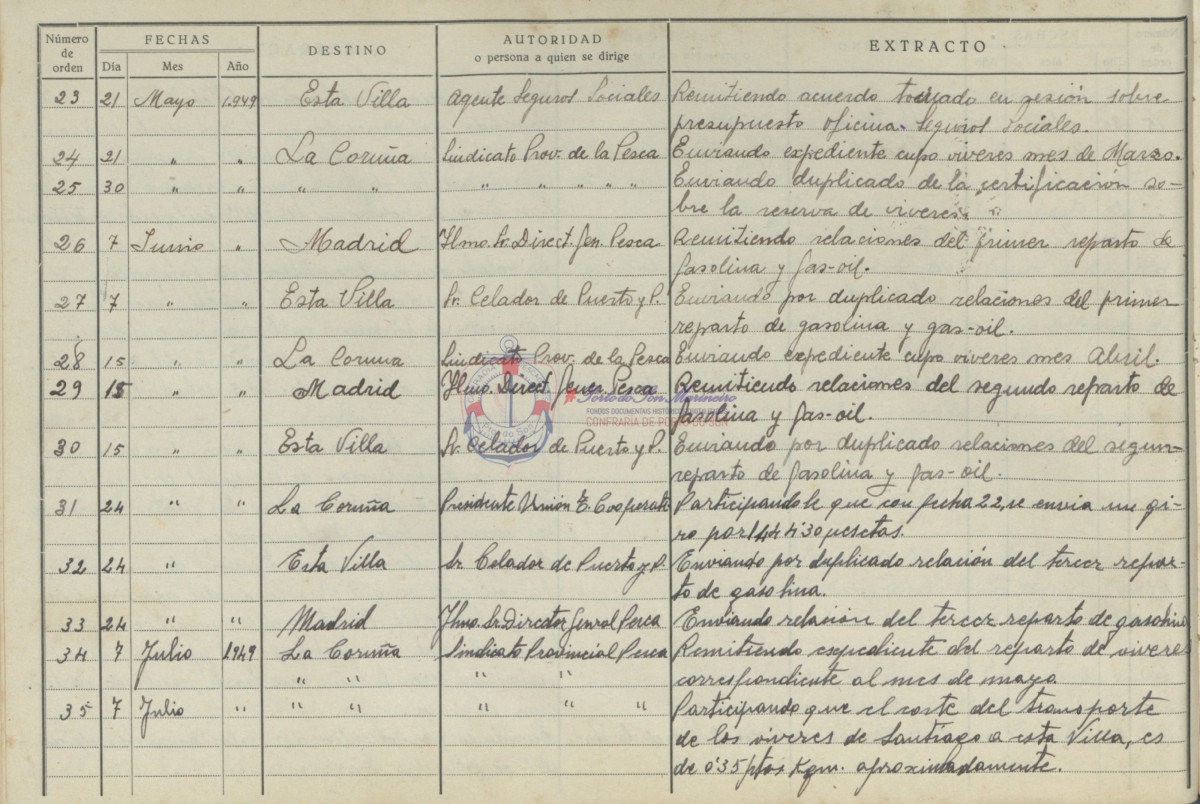 Número de orden FECHAS DESTINO AUTORIDAD o persona a quien se dirige EXTRACTO
Dia Mes Año
23 21 Mayo 1.949 Esta Villa Agente Seguros Sociales Remitiendo acuerdo tomado en sesión sobre
presupuesto oficina Seguros Sociales.
24 21 " " La Coruña Sindicato Prov. de la Pesca Enviando expediente cupo viveres mes de Marzo.
25 30 " " " " " " " " " Enviando duplicado de la certificación so-
bre la reserva de viveres.
26 7 Junio " Madrid Ylmo. Sr. Direct. Gen. Pesca Remitiendo relaciones del primer reparto de
gasolina y gas-oil.
27 7 " " Esta Villa Sr. Celador de Puerto y P. Enviando por duplicado relaciones del primer
reparto de gasolina y gas-oil.
28 15 " " La Coruña Sindicato Prov. de la Pesca Enviando expediente cupo viveres mes Abril.
29 15 " " Madrid Ylmo. Direct. Gener. Pesca Remitiendo relaciones del segundo reparto de
gasolina y gas-oil.
30 15 " " Esta Villa Sr. Celador de Puerto y P. Enviando por duplicado relaciones del segun-
reparto de gasolina y gas-oil.
31 24 " " La Coruña Presidente Unión Cooperati Participandole que con fecha 22, se envia un gi-
ro por 1444'30 pesetas.
32 24 " Esta Villa Sr. Celador de Puerto y P. Enviando por duplicado relación del tercer repar-
to de gasolina.
33 24 " " Madrid Ylmo. Sr. Director Genral Pesca Enviando relación del tercer reparto de gasolina
34 7 Julio 1949 La Coruña Sindicato Provincial Pesca Remitiendo expediente del reparto de viveres
" " " " correspondiente al mes de mayo
35 7 Julio " " " " " " Participando que el coste del transporte
de los viveres de Santiago a esta Villa, es
de 0'35 ptas Kgm. aproximadamente.
Porto do Son Marineiro
CONFRARÍA DE PORTO DO SON